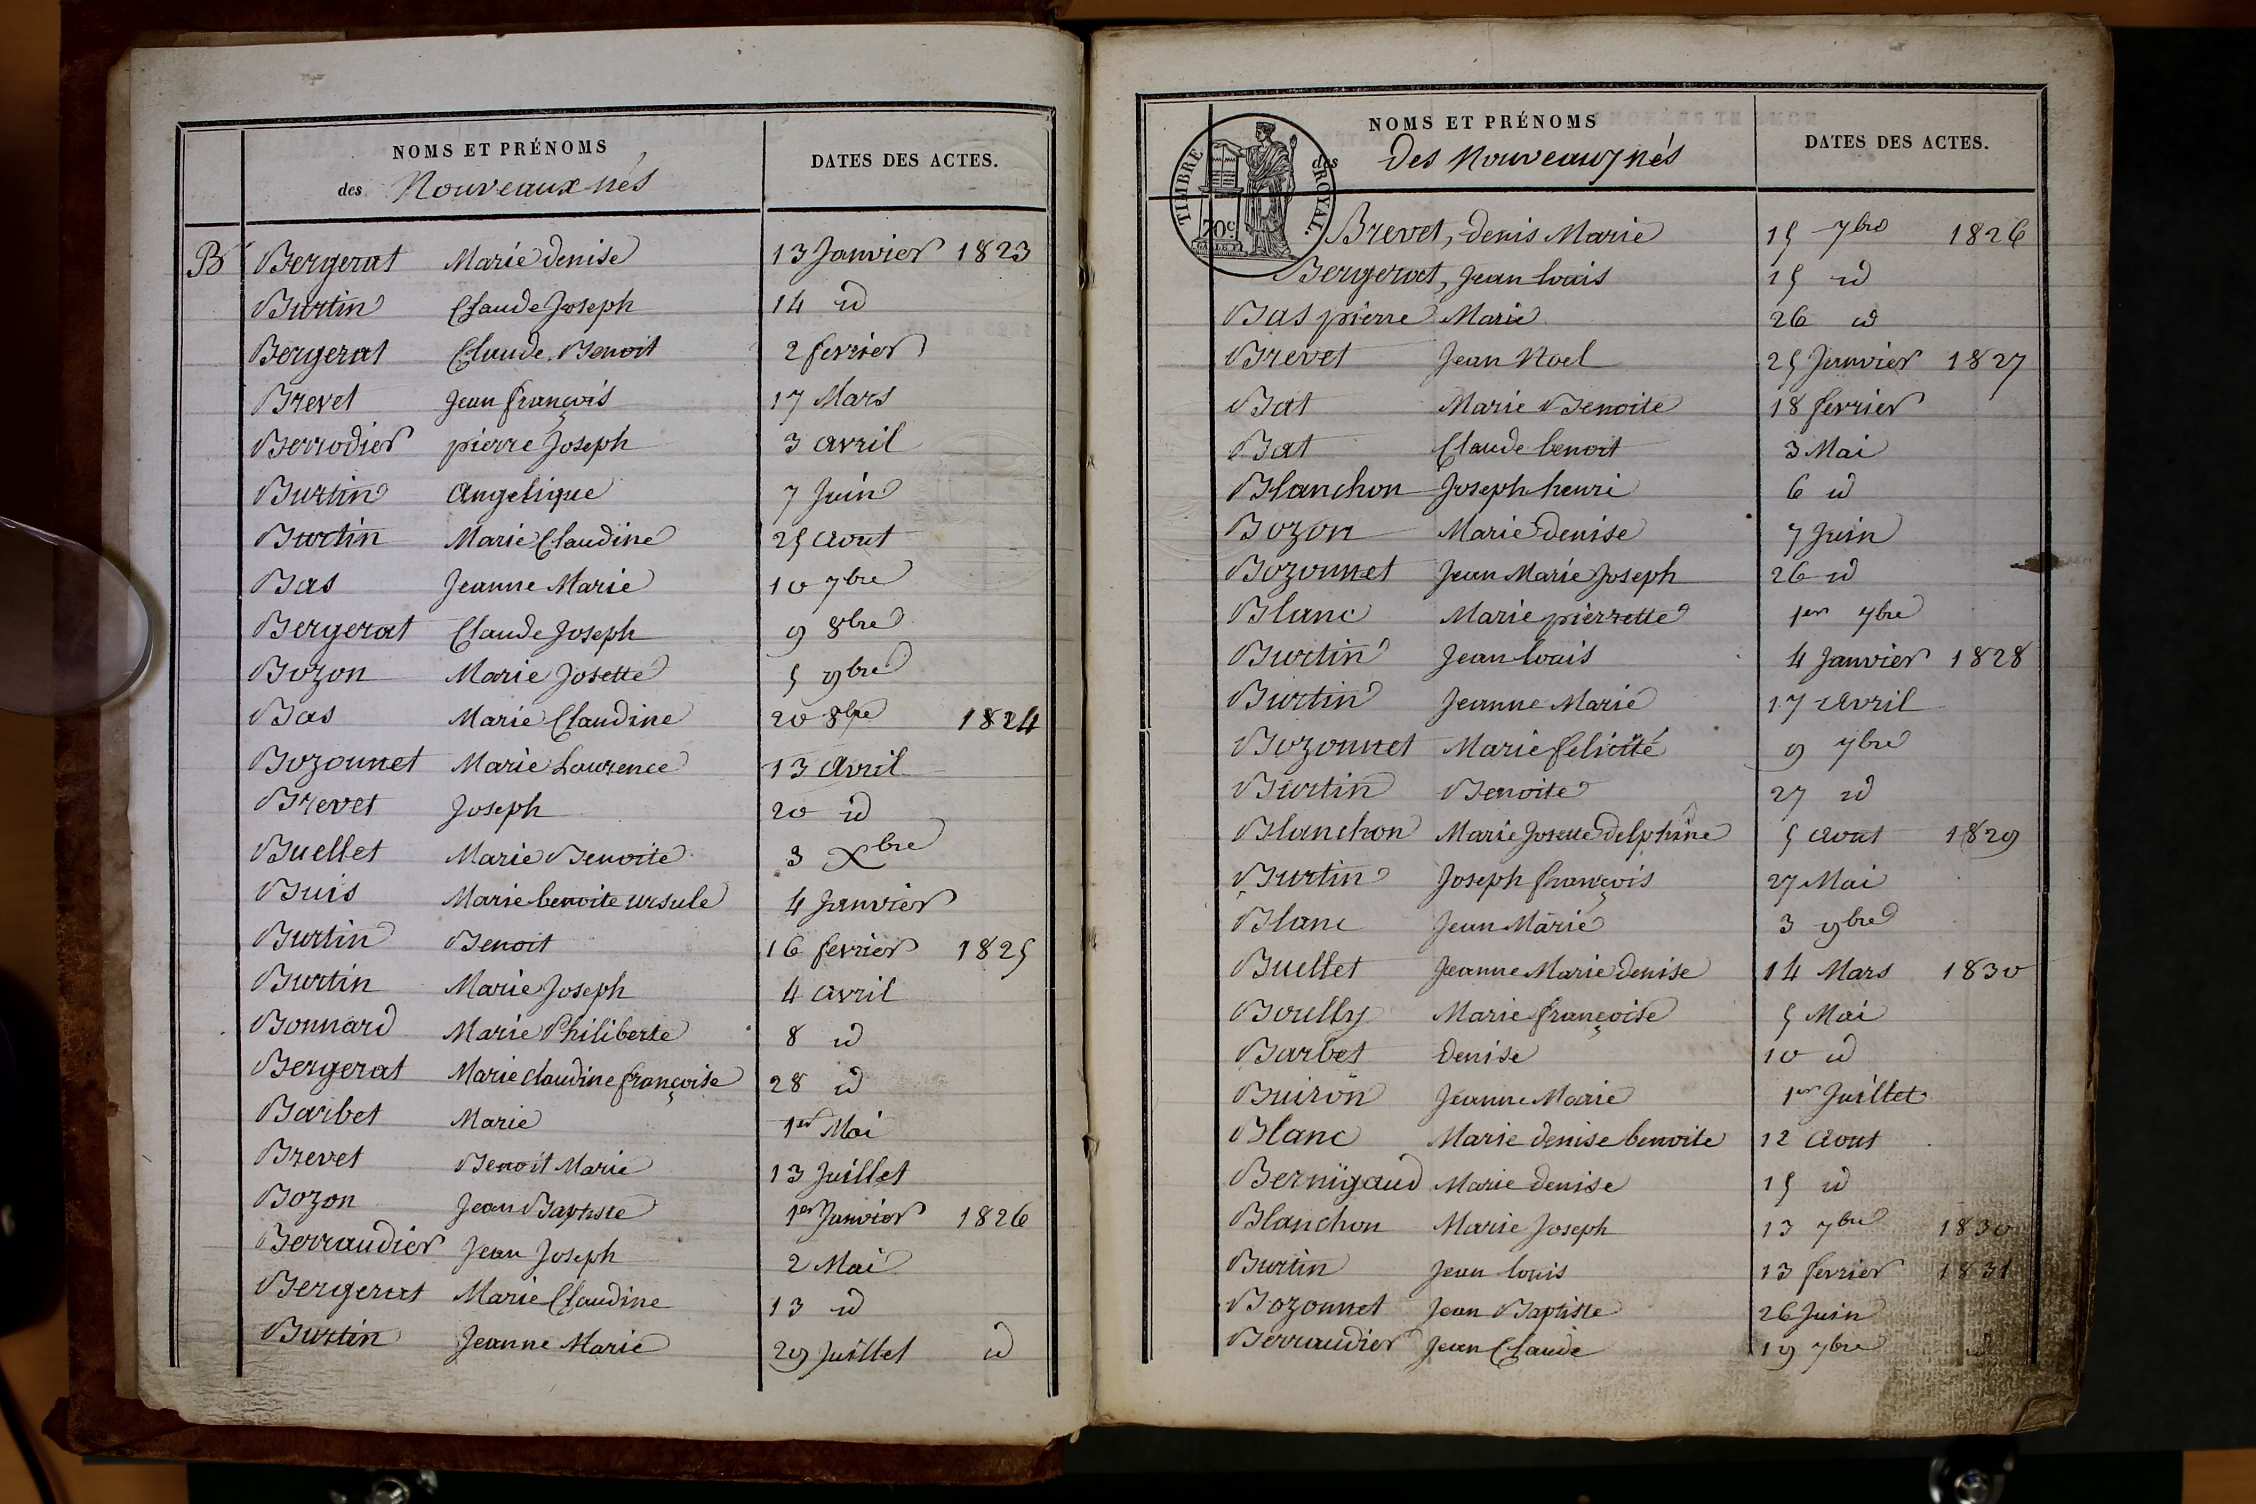 NOMS ET PRÉNOMS
des Nouveaux nés
DATES DES ACTES.
B Bergerat Marie denise 13 Janvier 1823
Burtin Claude Joseph 14 id
Bergerat Claude Benoit 2 fevrier
Brevet Jean françois 17 Mars
Berrodier pierre Joseph 3 avril
Burtin angelique 7 Juin
Burtin Marie Claudine 25 aout
Bas Jeanne Marie 10 7bre
Bergerat Claude Joseph 9 8bre
Bozon Marie Josette 5 9bre
Bas Marie Claudine 20 8bre 1824
Bozonnet Marie Laurence 13 avril
Brevet Joseph 20 id
Buellet Marie Benoite 3 Xbre
Buis Marie benoite ursule 4 Janvier
Burtin Benoit 16 fevrier 1825
Burtin Marie Joseph 4 avril
Bonnard Marie Philiberte 8 id
Bergerat Marie claudine françoise 28 id
Barbet Marie 1er Mai
Brevet Benoit Marie 13 Juillet
Bozon Jean Baptiste 1er Janvier 1826
Berraudier Jean Joseph 2 Mai
Bergerat Marie Claudine 13 id
Burtin Jeanne Marie 29 Juillet id
NOMS ET PRÉNOMS
des
Des Nouveaux nés
DATES DES ACTES.
TIMBRE ROYAL.
70c
Brevet, denis Marie 15 7bre 1826
Bergerat, Jean louis 15 id
Bas pierre Marie 26 id
Brevet Jean Noel 25 Janvier 1827
Bat Marie Benoite 18 fevrier
Bat Claude benoit 3 Mai
Blanchon Joseph henri 6 id
Bozon Marie denise 7 Juin
Bozonnet Jean Marie Joseph 26 id
Blanc Marie pierrette 1er 7bre
Burtin Jean louis 4 Janvier 1828
Burtin Jeanne Marie 17 Avril
Bozonnet Marie felicité 9 7bre
Burtin Benoite 27 id
Blanchon Marie Josette delphine 5 aout 1829
Burtin Joseph françois 27 Mai
Blanc Jean Marie 3 9bre
Buellet Jeanne Marie denise 14 Mars 1830
Boully Marie françoise 5 Mai
Barbet denise 10 id
Buiron Jeanne Marie 1er Juillet
Blanc Marie denise benoite 12 aout
Bernigaud Marie denise 15 id
Blanchon Marie Joseph 13 7bre 1830
Burtin Jean louis 13 fevrier 1831
Bozonnet Jean Baptiste 26 Juin
Berraudier Jean Claude 19 7bre id